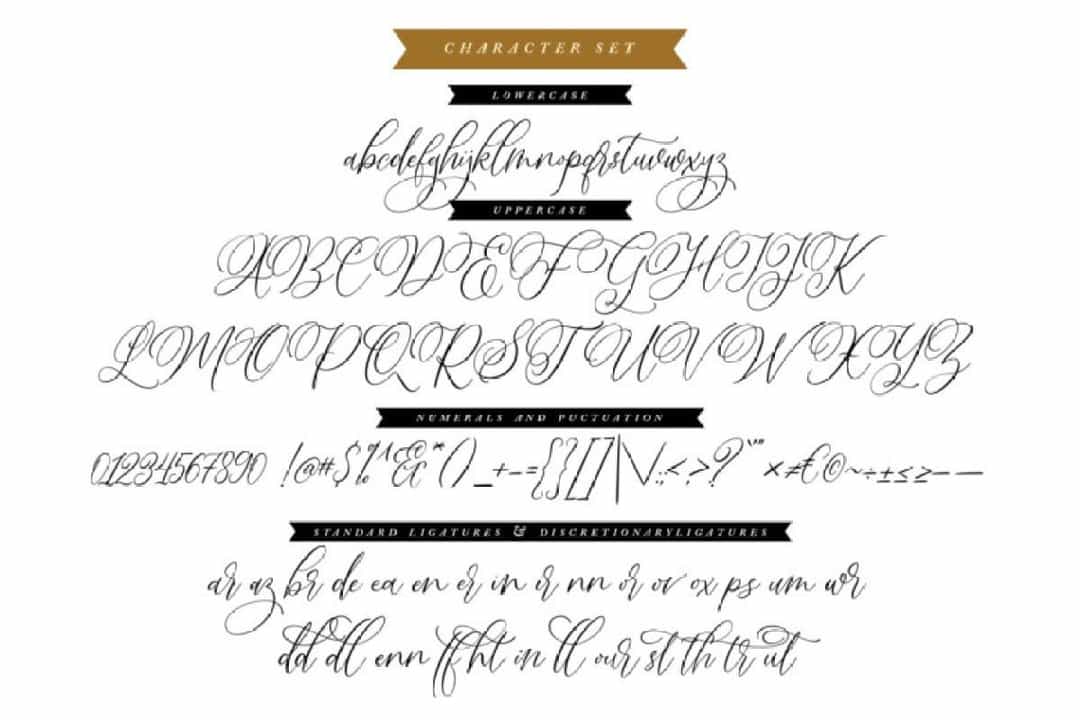 CHARACTER SET
LOWERCASE
abcdefghijklmnopqrstuvwxyz
UPPERCASE
ABCDEFGHIJK
LMOPQRSTUVWXYZ
NUMERALS AND PUCTUATION
01234567890 !@#$%^&* () _+-={}[]|\/:;<>?"" ×≠€©~÷±≤≥——
STANDARD LIGATURES & DISCRETIONARYLIGATURES
ar az br de ea en er in ir nn or ov ox ps um wr
dd dl enn ff ht in ll our st th tr ut